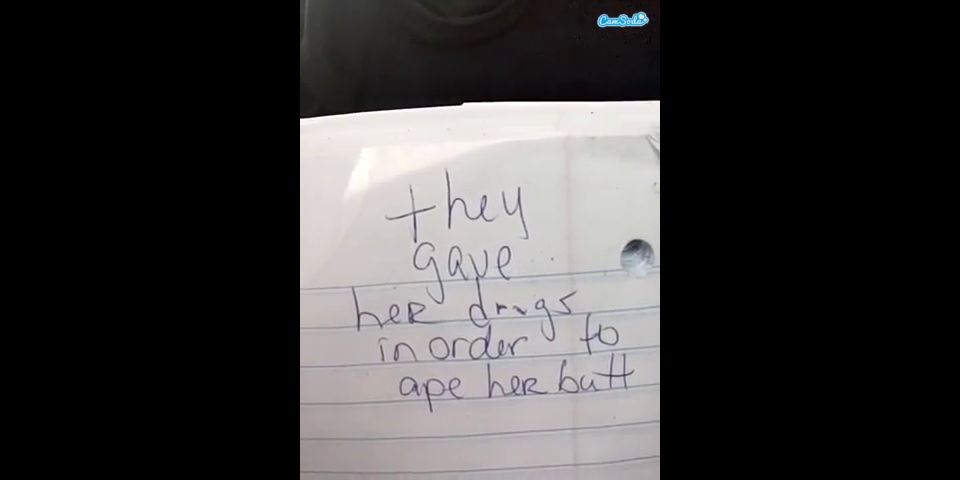 CamSoda
they
gave
her drugs
in order to
ape her butt